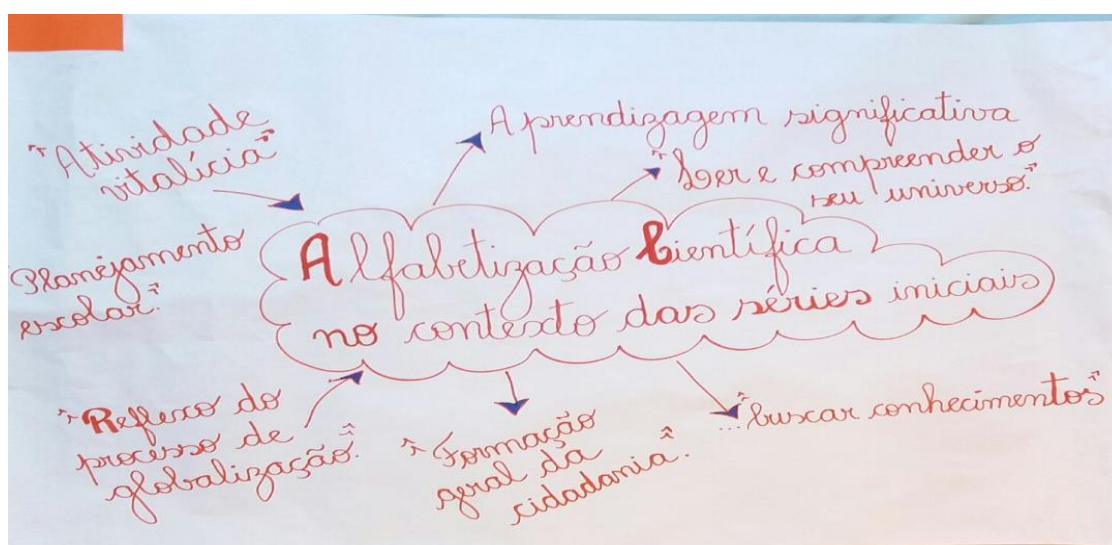 "Atividade
vitalícia"
Aprendizagem significativa
"Ler e compreender o
seu universo."
Planejamento
escolar."
Alfabetização Científica
no contexto das séries iniciais
"Reflexo do
processo de
globalização."
"Formação
geral da
cidadania."
..."buscar conhecimentos"